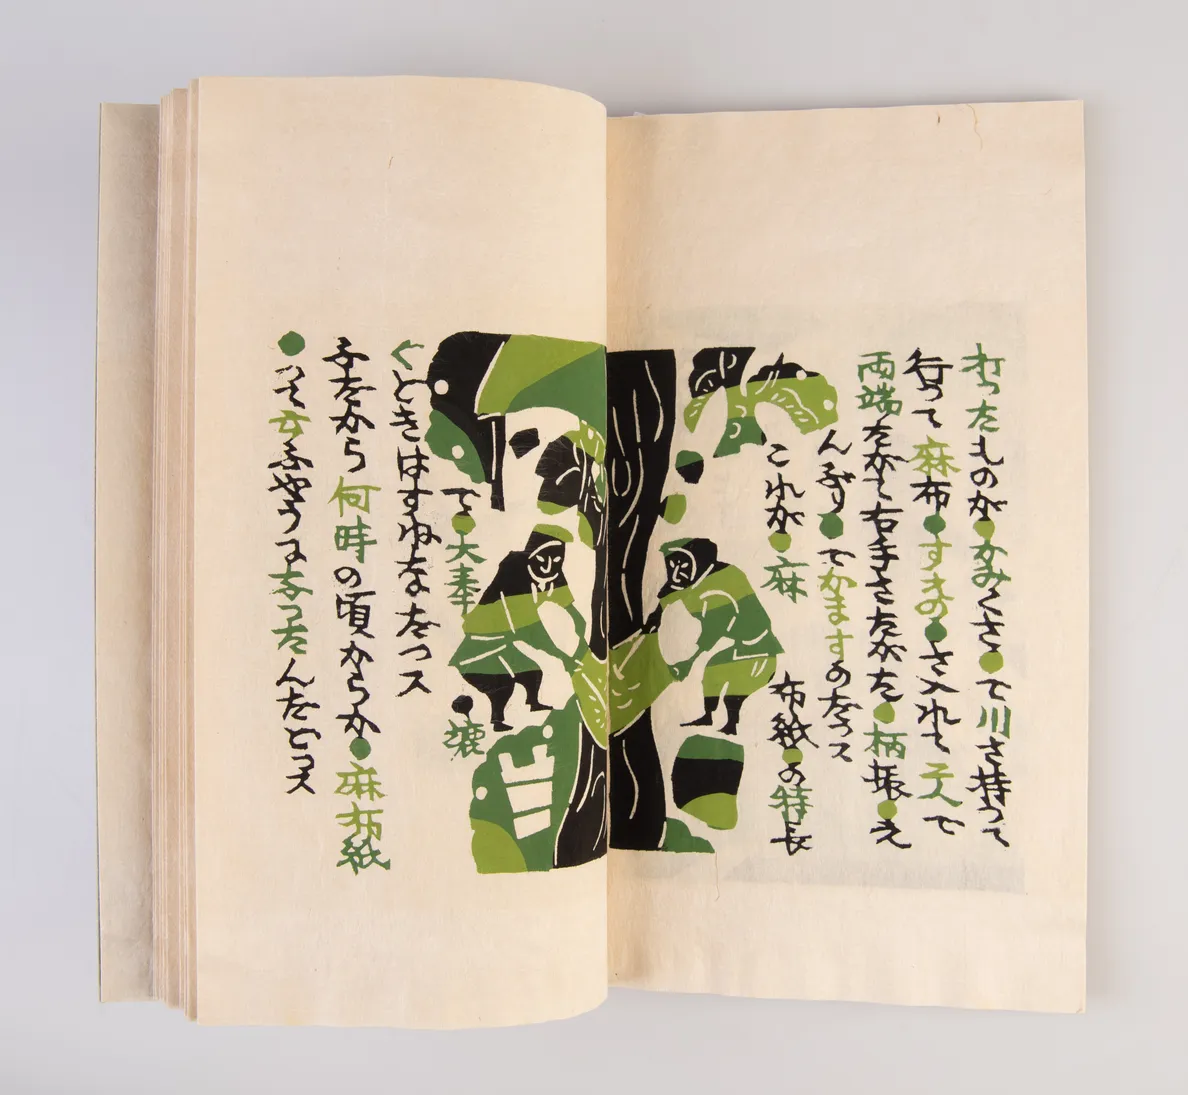 打ったものが●かみくさ●で川さ持って
行って麻布●すきの●さ入れて二人で
両端たがて右手さたがた●柄振え
んぶり●でかますのだっス
これが●麻
布紙●の特長
で●大奉
漉
ぐときはすねなだっス
だから何時の頃からか●麻布紙
●って云ふやうになったんだとっス